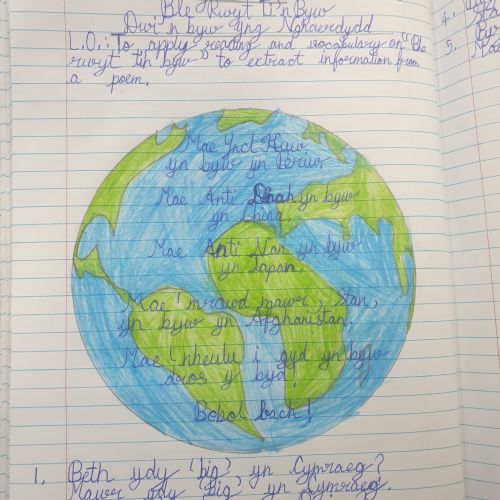 Ble Rwyt Ti'n Byw
Dwi'n byw yng Nghaerdydd
L.O.: To apply reading and vocabulary on "Ble
rwyt ti'n byw" to extract information from
a poem.
Mae Yncl Huw
yn byw yn Periw
Mae Anti Dinah yn byw
yn China.
Mae Anti Nan yn byw
yn Japan.
Mae 'mrawd mawr, Stan,
yn byw yn Afghanistan.
Mae 'nheulu i gyd yn byw
dros y byd!
Bobol bach!
1. Beth ydy 'big' yn Cymraeg?
Mawr ydy 'Big' yn Cymraeg.
4.
5.